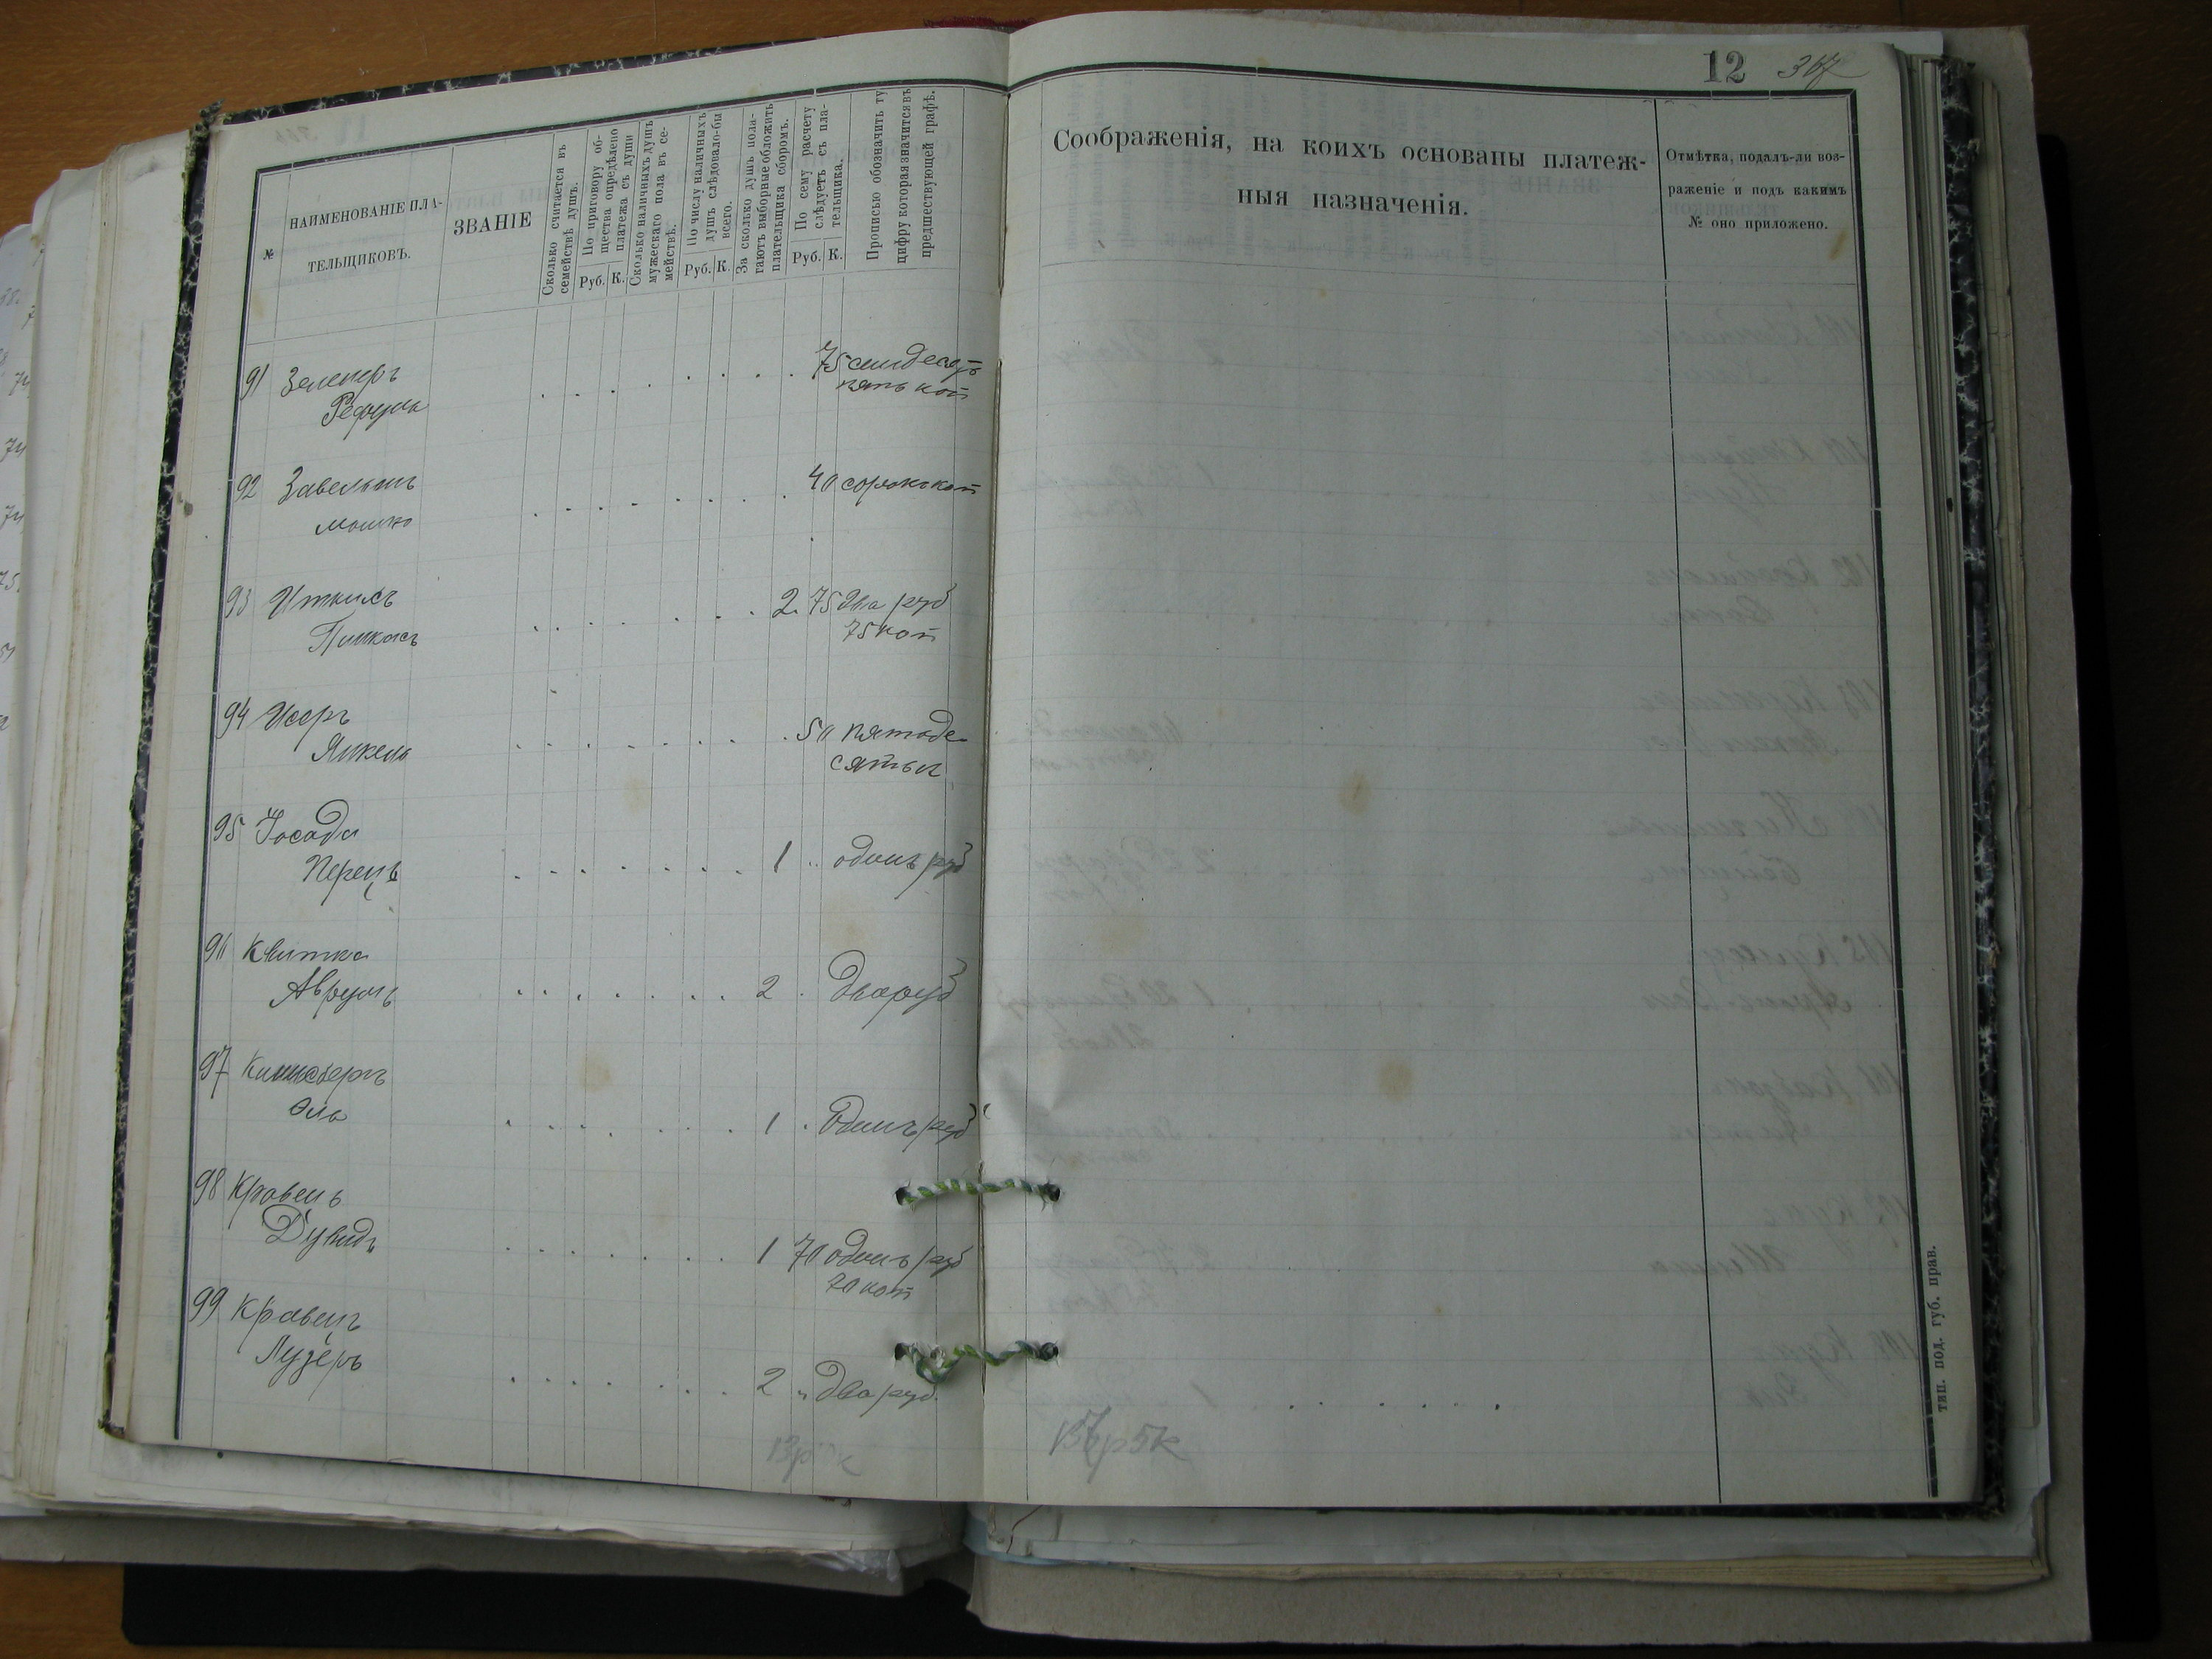 12 367
№
НАИМЕНОВАНІЕ ПЛА-
ТЕЛЬЩИКОВЪ.
ЗВАНІЕ
Сколько считается въ
семействѣ душъ.
По приговору об-
щества опредѣлено
платежа съ души
Руб. К.
Сколько наличныхъ душъ
мужескаго пола въ се-
мействѣ.
По числу наличныхъ
душъ слѣдовало-бы
всего.
Руб. К.
За сколько душъ пола-
гаютъ выборные обложить
плательщика сборомъ.
По сему расчету
слѣдуетъ съ пла-
тельщика.
Руб. К.
Прописью обозначить ту
цифру которая значится въ
предшествующей графѣ.
Соображенія, на коихъ основаны платеж-
ныя назначенія.
Отмѣтка, подалъ-ли воз-
раженіе и подъ какимъ
№ оно приложено.
91 75 семдесятъ
пять коп
92 40 сорокъ коп
Мошко
93 2. 75 два руб
Пинкасъ 75 коп
94 Исеръ 50 пятьде-
Янкель сятьк
95 1 одинъ руб
Перецъ
96 Квитка
Аврумъ 2 два руб
97
Эль 1 Одинъ руб
98 Кравецъ
Дувидъ 1 70 одинъ руб
70 коп
99 Кравецъ
Лузеръ
2 " два руб.
тип. под. губ. прав.